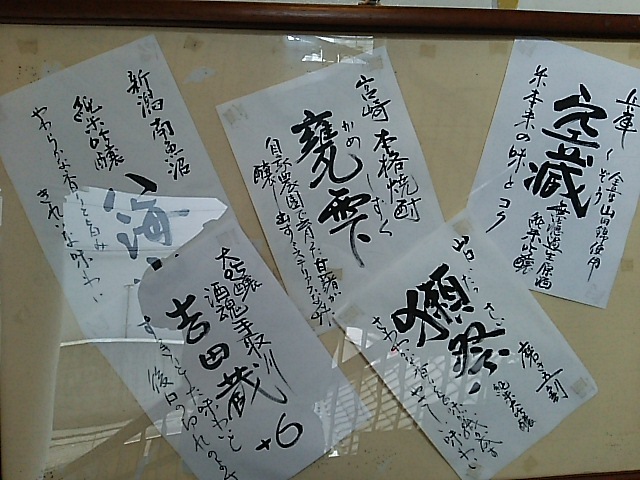 新潟 南魚沼
純米吟醸
八海
やわらかな香りと旨み
きれいな味わい
大吟醸
酒魂 手取川
吉田蔵
+6
すっきりとした味わいと
後口のキレのよさ
宮崎 本格焼酎
かめ しずく
甕雫
自家農園で育った甘藷が
醸し出す
兵庫
くら
空蔵
全量山田錦使用
無濾過生原酒
純米吟醸
米本来の味とコク
山口
獺祭
磨き五割
純米大吟醸